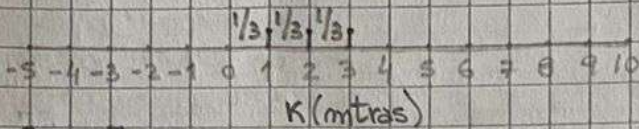 1/3 1/3 1/3
-5 -4 -3 -2 -1 0 1 2 3 4 5 6 7 8 9 10
K(mtras)